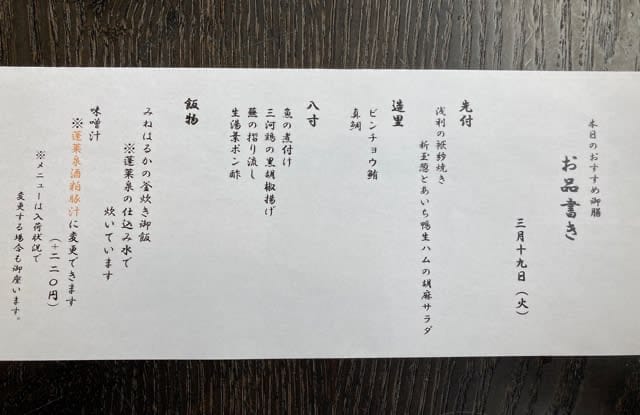 本日のおすすめ御膳
お品書き
三月十九日（火）
先付
浅利の袱紗焼き
新玉葱とあいち鴨生ハムの胡麻サラダ
造里
ビンチョウ鮪
真鯛
八寸
魚の煮付け
三河鶏の黒胡椒揚げ
蕪の摺り流し
生湯葉ポン酢
飯物
みねはるかの釜炊き御飯
※蓬莱泉の仕込み水で
炊いています
味噌汁
※蓬莱泉酒粕豚汁に変更できます
（＋二二〇円）
※メニューは入荷状況で
変更する場合も御座います。